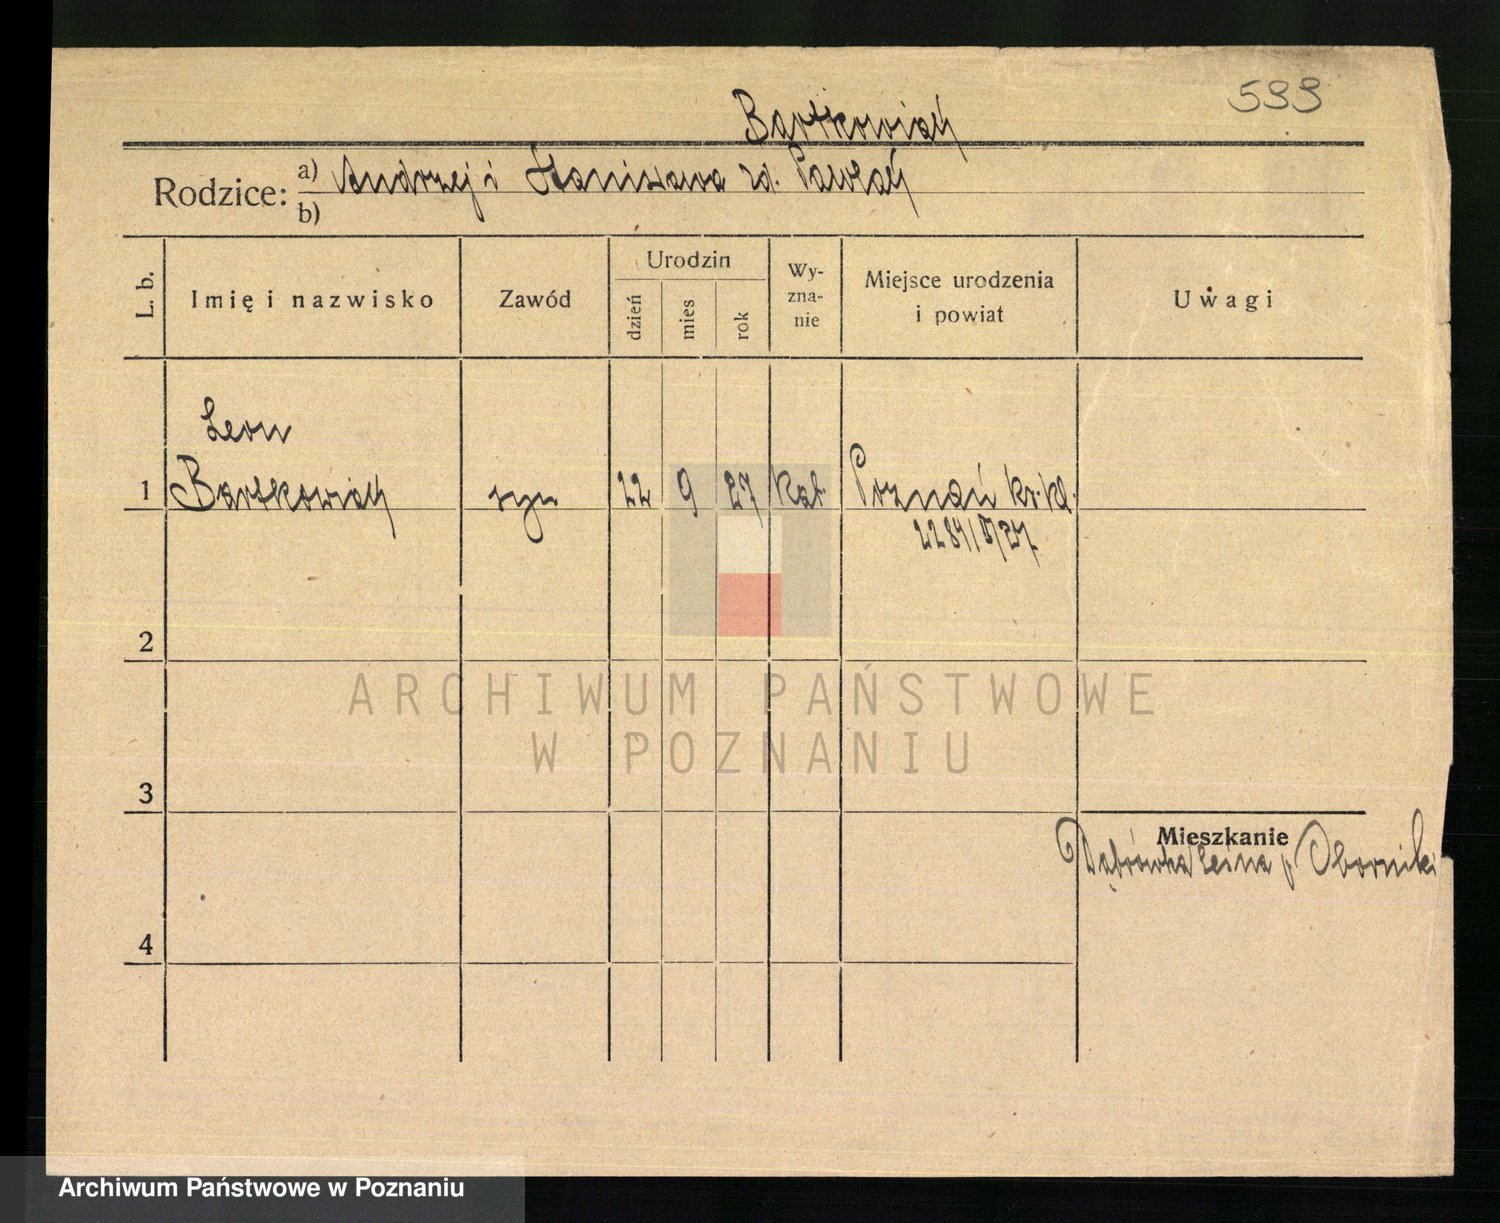 599
Bartkowiak
Rodzice: a) Andrzej i Stanisława zd. Pawlak
b)
L. b.
Imię i nazwisko
Zawód
Urodzin
dzień
mies
rok
Wy-
zna-
nie
Miejsce urodzenia
i powiat
Uwagi
Leon
1 Bartkowiak syn 22 9 27 kat. Poznań
2
3
4
Mieszkanie
Dąbrówka Leśna p Oborniki
ARCHIWUM PAŃSTWOWE
W POZNANIU
Archiwum Państwowe w Poznaniu